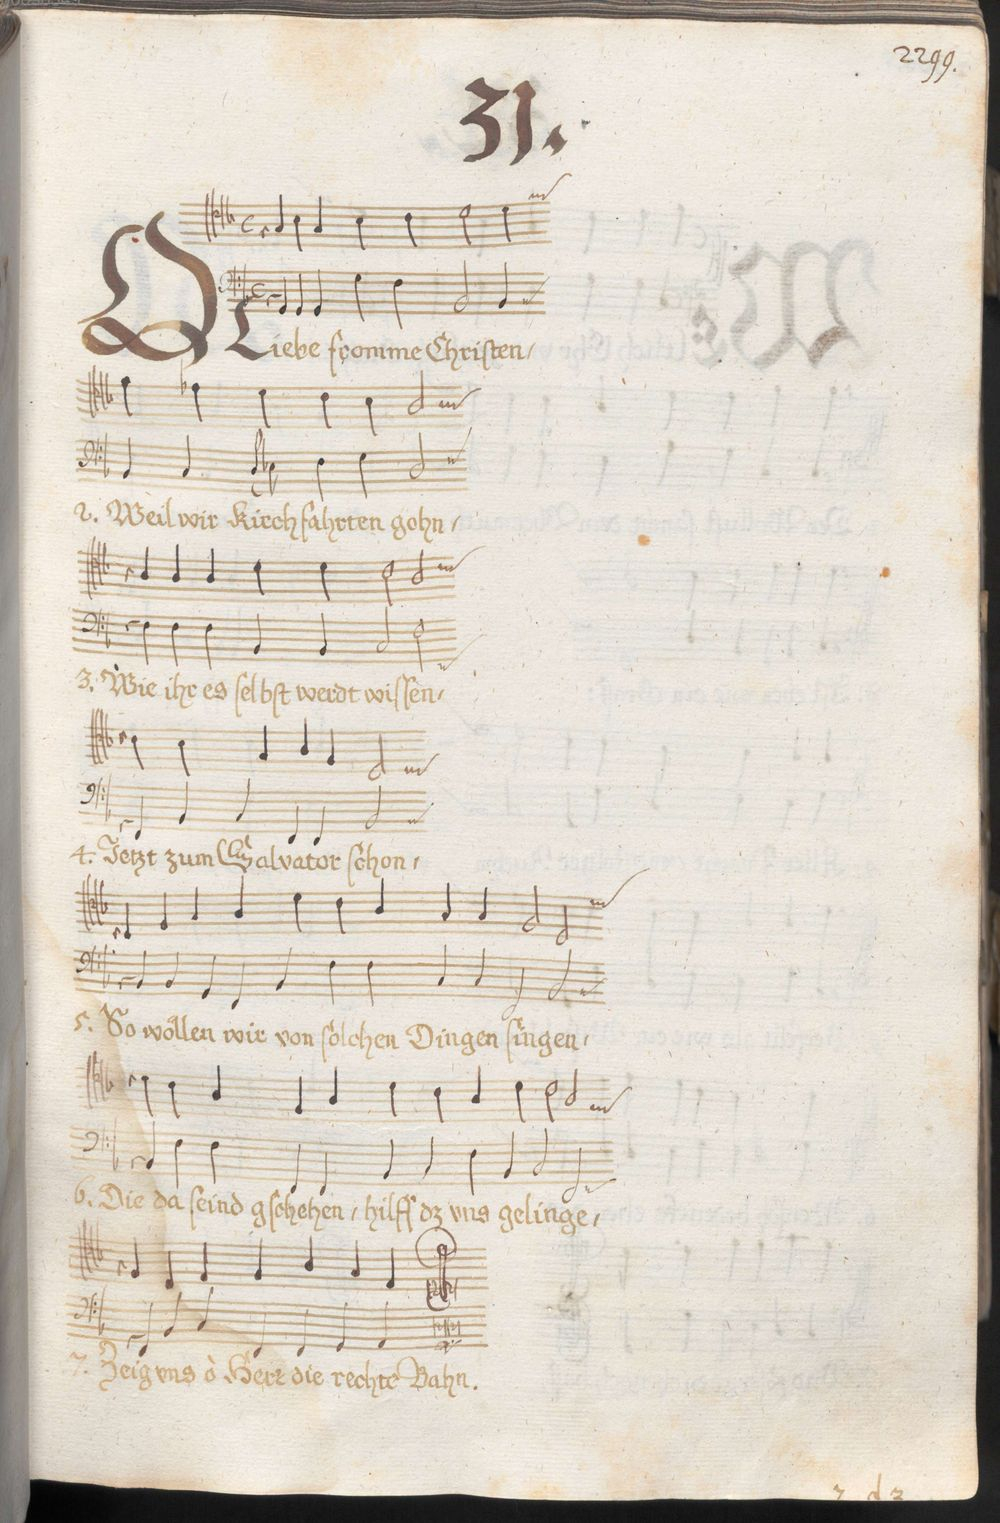 2299.
31.
O Liebe fromme Christen,
2. Weil wir Kirchfahrten gohn,
3. Wie ihr es selbst werdt wissen,
4. Jetzt zum Salvator schon,
5. So wöllen wir von solchen Dingen singen,
6. Die da seind gschehen, hilff dz vns gelinge,
7. Zeig vns ô Herr die rechte Bahn.